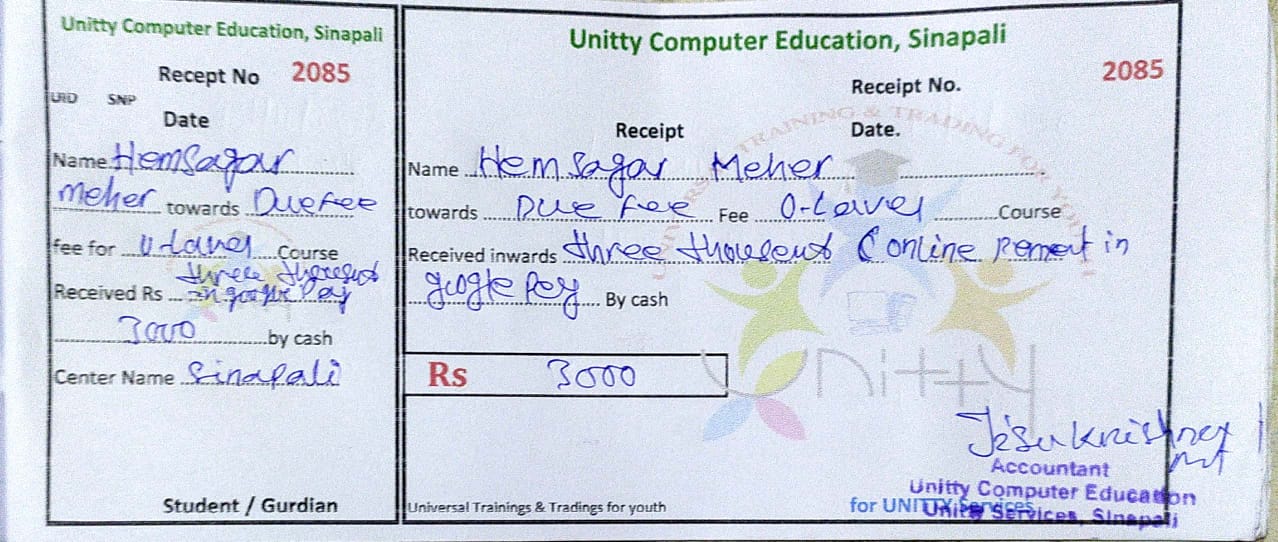 Unitty Computer Education, Sinapali
Recept No 2085
UID SNP
Date
Name Hemsagar
Meher towards Due Fee
fee for O-Lavel Course
three thousent
Received Rs in google Pay
3000 by cash
Center Name Sinapali
Student / Gurdian
Unitty Computer Education, Sinapali
2085
Receipt No.
Receipt Date.
Name Hemsagar Meher
towards Due Fee Fee O-Lavel Course
Received inwards three thousent (online Pement in
google Pey By cash
Rs 3000
Unitty
Accountant
Unitty Computer Education
Unitty Services, Sinapali
Universal Trainings & Tradings for youth for UNITTY Services